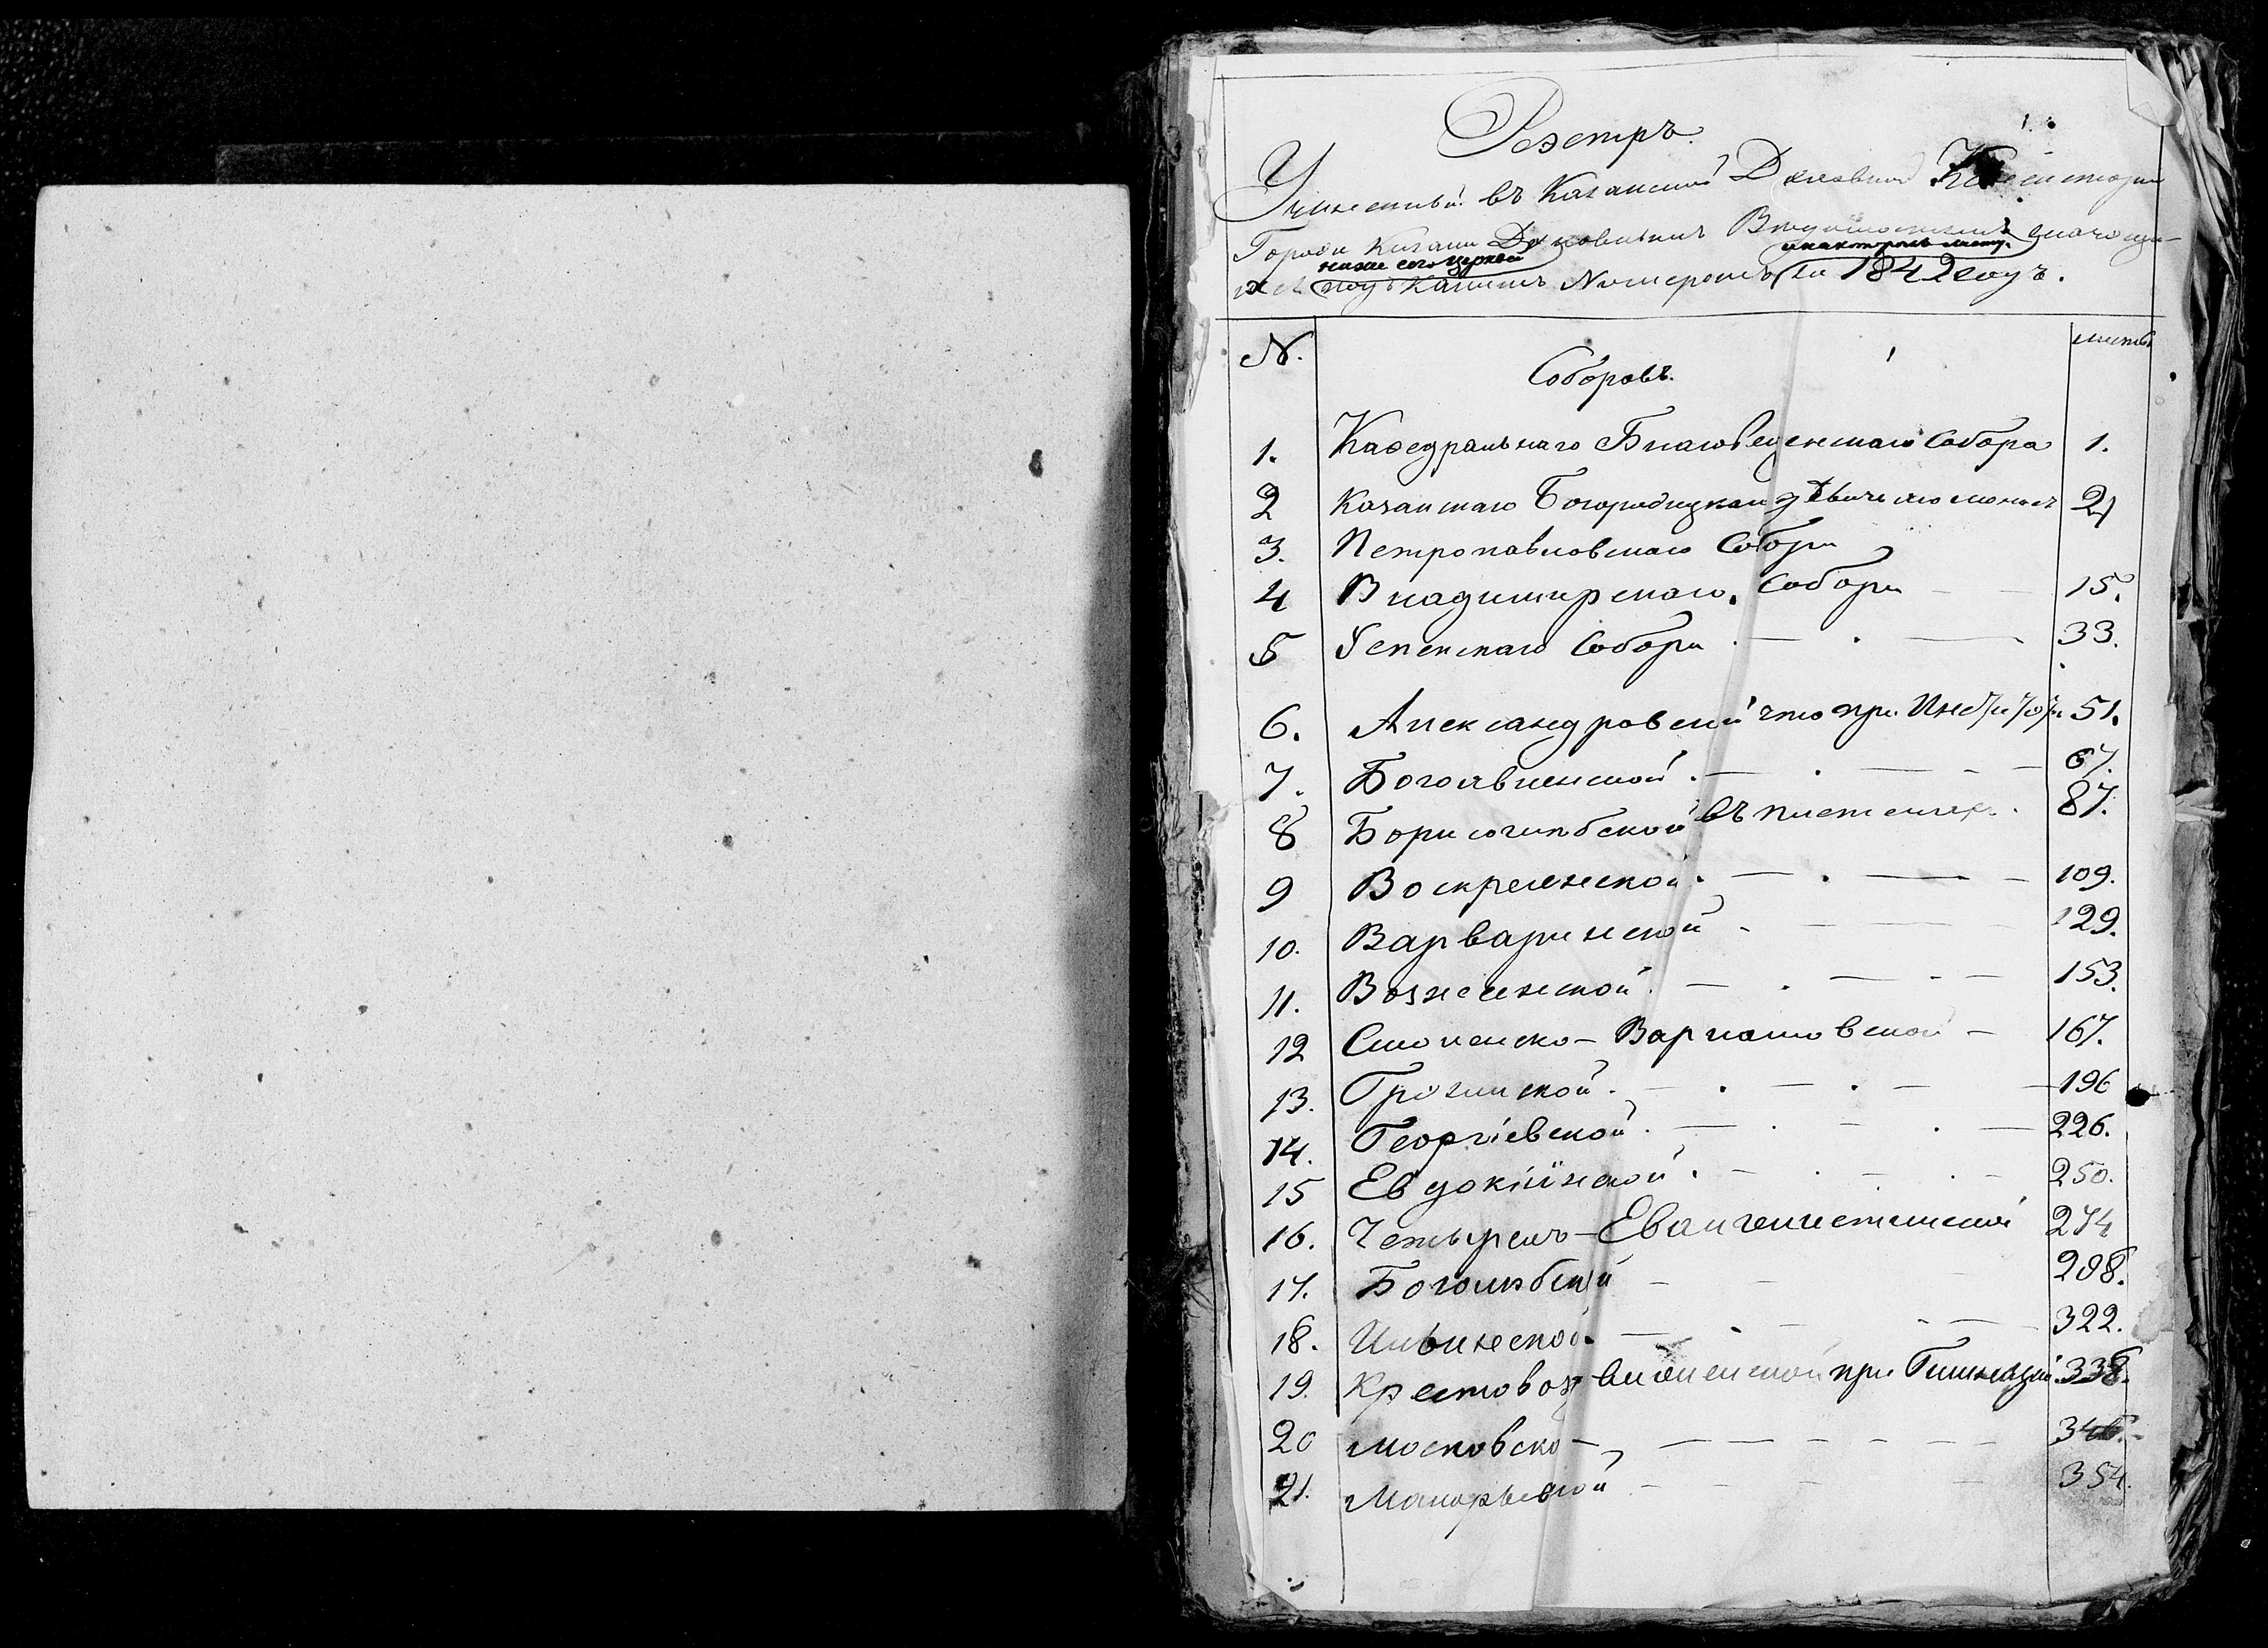 Реэстръ.
Учиненный въ Казанской Духовной Консисторіи
Города Казани Духовнымъ Ведомостямъ
и на которомъ листу.
ниже сего церквей
подъ какимъ Номеромъ за 1842 годъ.
№. Соборовъ. листы
1. Кафедральнаго Благовещенскаго Собора 1.
2 Казанскаго Богородицкаго девичьяго монас 2
3. Петропавловскаго Собора
4 Владимирскаго Собора 15.
5 Успенскаго Собора 33.
6. Александровской что при 51.
7. Богоявленской 67.
8 Борисоглебской въ плетеняхъ 87.
9 Воскресенской 109.
10. Варваринской 129.
11. Вознесенской 153.
12 Смоленско-Варламовской 167.
13. Грузинской 196
14. Георгіевской 226.
15 Евдокіинской 250.
16. Четырехъ-Евангелистенской 274
17. Боголюбской 298.
18. Ильинской 322.
19. Крестовоздвиженской при Гимназіи 338.
20 Московско- 346.
21. Макарьевской 354.